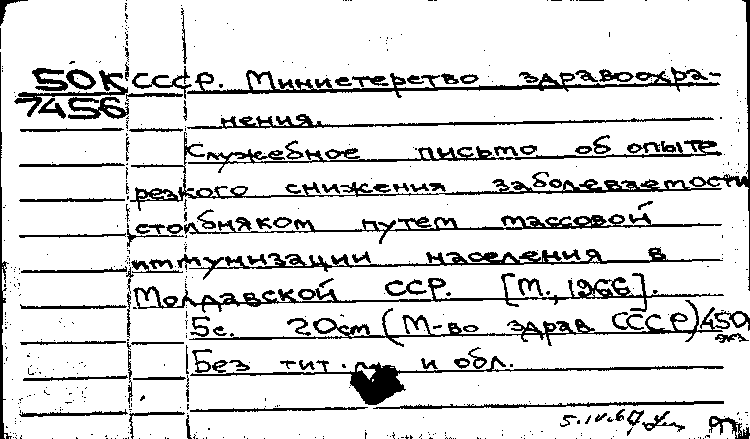 50К СССР. Министерство здравоохра-
7456 нения.
Служебное письмо об опыте
резкого снижения заболеваемости
столбняком путем массовой
иммунизации населения в
Молдавской ССР. [М., 1966].
5с. 20см (М-во здрав. СССР) 450 экз
Без тит. л. и обл.
5.IV.67